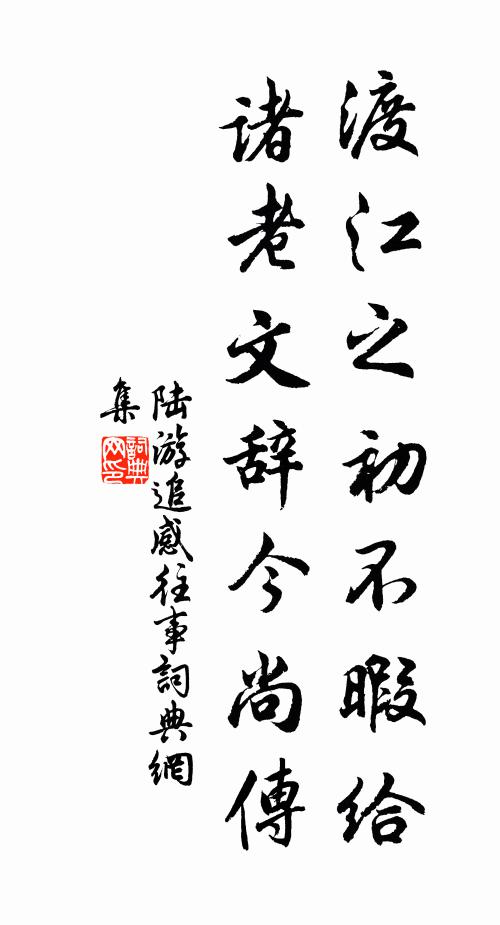 渡江之初不暇给
诸老文辞今尚傳
陆游追感往事詞典網
集
詞典网印